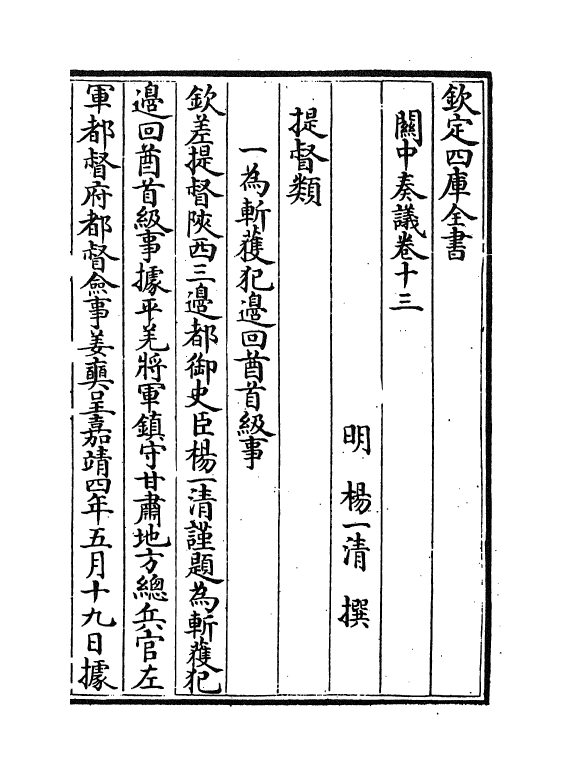 欽定四庫全書
關中奏議卷十三
明 楊一清 撰
提督類
一為斬獲犯邊回酋首級事
欽差提督陜西三邊都御史臣楊一清謹題為斬獲犯
邊回酋首級事據平羌將軍鎮守甘肅地方總兵官左
軍都督府都督僉事姜奭呈嘉靖四年五月十九日據